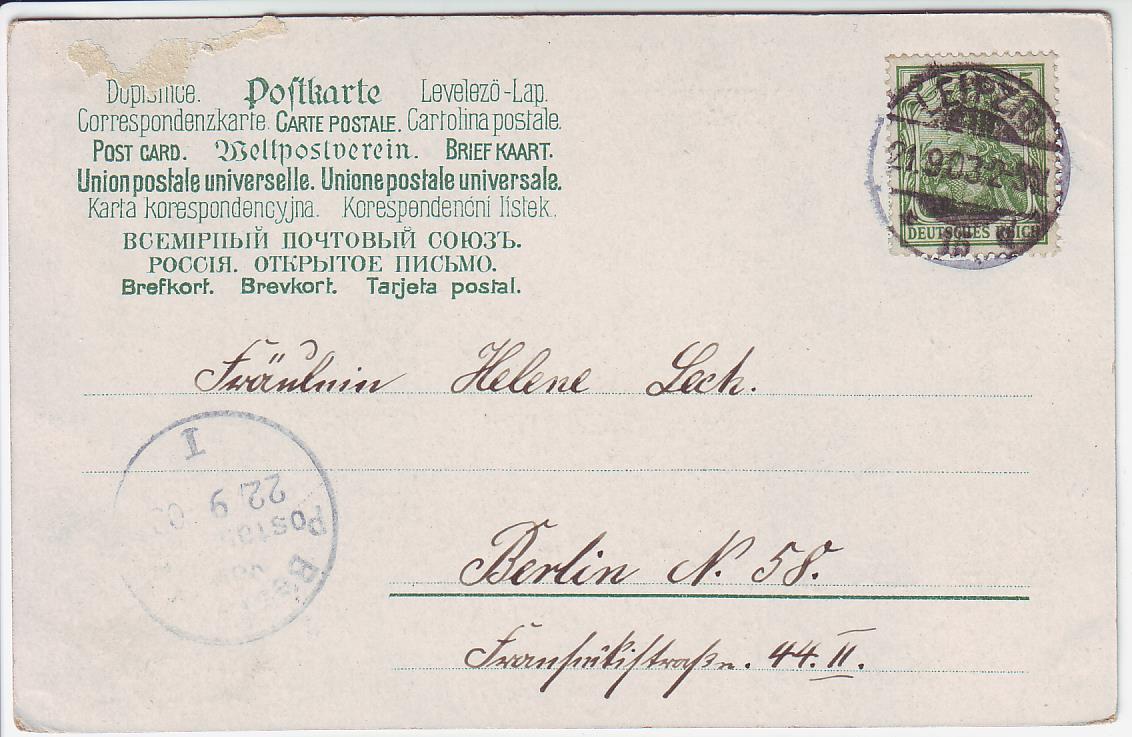 Postkarte Levelező-Lap.
Correspondenzkarte. CARTE POSTALE. Cartolina postale.
POST CARD. Weltpostverein. BRIEFKAART.
Union postale universelle. Unione postale universale.
Karta korespondencyjna. Korespondenční lístek.
ВСЕМІРНЫЙ ПОЧТОВЫЙ СОЮЗЪ.
РОССІЯ. ОТКРЫТОЕ ПИСЬМО.
Brefkort. Brevkort. Tarjeta postal.
5
LEIPZIG
21.9.03.
DEUTSCHES REICH
Fräulein Helene Lech.
I
22 9
Berlin N. 58.
44. II.